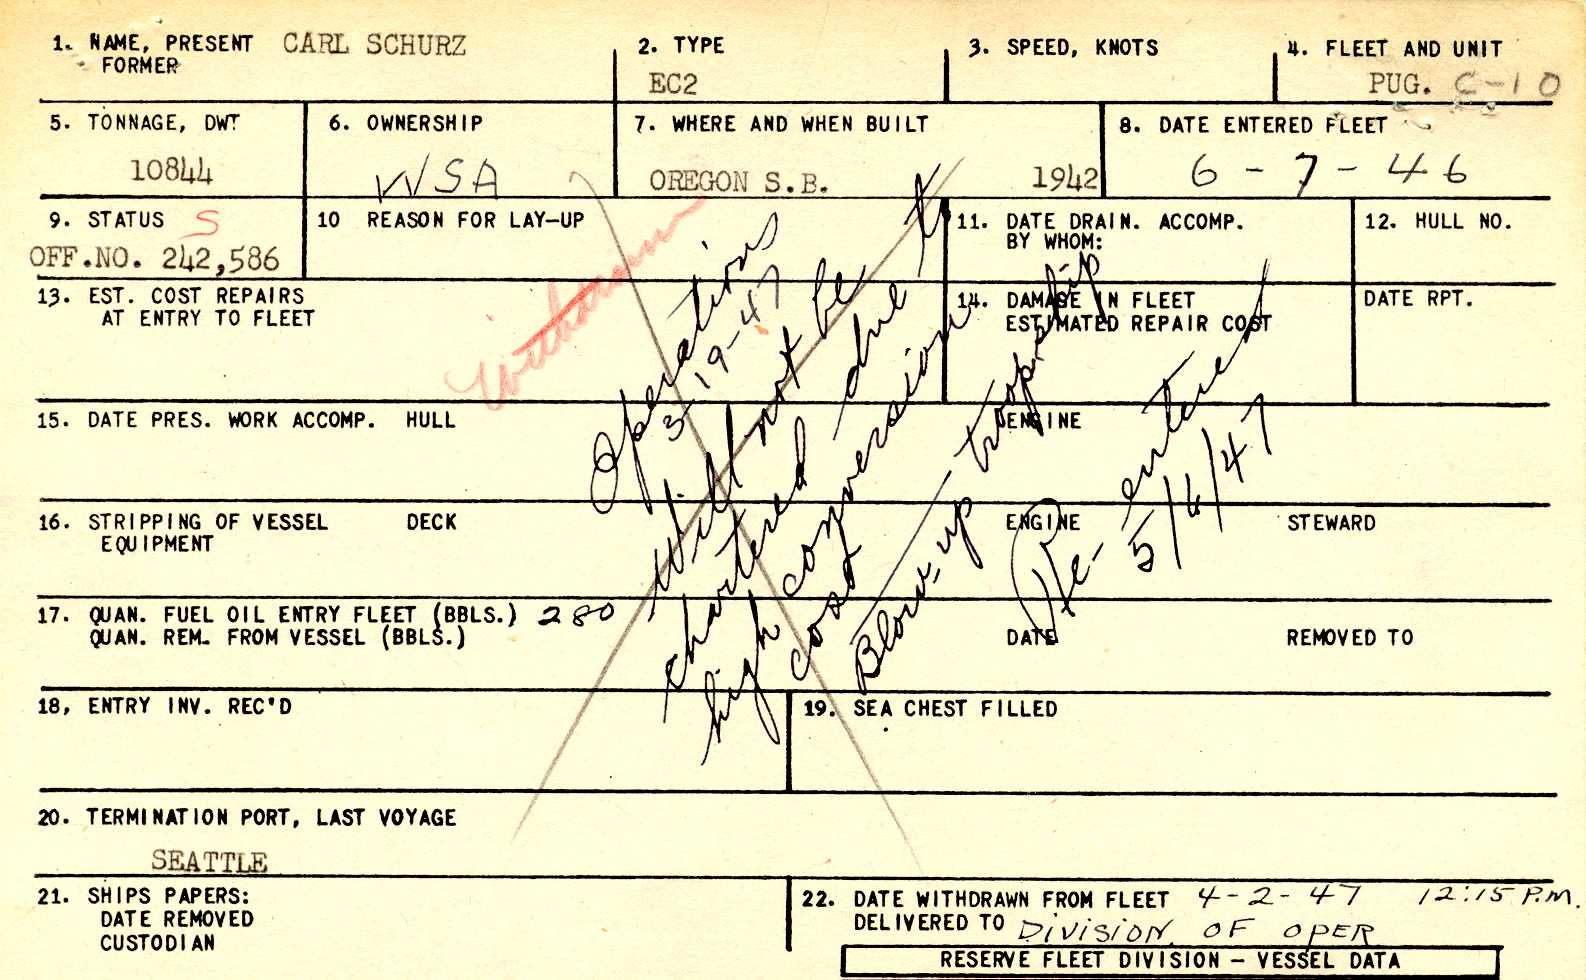 1. NAME, PRESENT CARL SCHURZ
FORMER
2. TYPE
EC2
3. SPEED, KNOTS
4. FLEET AND UNIT
PUG. C-10
5. TONNAGE, DWT
10844
6. OWNERSHIP
WSA
7. WHERE AND WHEN BUILT
OREGON S.B. 1942
8. DATE ENTERED FLEET
6-7-46
9. STATUS S
OFF.NO. 242,586
10 REASON FOR LAY-UP
11. DATE DRAIN. ACCOMP.
BY WHOM:
12. HULL NO.
13. EST. COST REPAIRS
AT ENTRY TO FLEET
14. DAMAGE IN FLEET
ESTIMATED REPAIR COST
DATE RPT.
Withdrawn
Operations
3-19-47
Will not be
chartered due t
high conversion
cost
Blow-up troopship
Re-entered
5/6/47
15. DATE PRES. WORK ACCOMP. HULL ENGINE
16. STRIPPING OF VESSEL DECK ENGINE STEWARD
EQUIPMENT
17. QUAN. FUEL OIL ENTRY FLEET (BBLS.) 280
QUAN. REM. FROM VESSEL (BBLS.) DATE REMOVED TO
18, ENTRY INV. REC'D
19. SEA CHEST FILLED
20. TERMINATION PORT, LAST VOYAGE
SEATTLE
21. SHIPS PAPERS:
DATE REMOVED
CUSTODIAN
22. DATE WITHDRAWN FROM FLEET 4-2-47 12:15 P.M.
DELIVERED TO DIVISION OF OPER
RESERVE FLEET DIVISION - VESSEL DATA